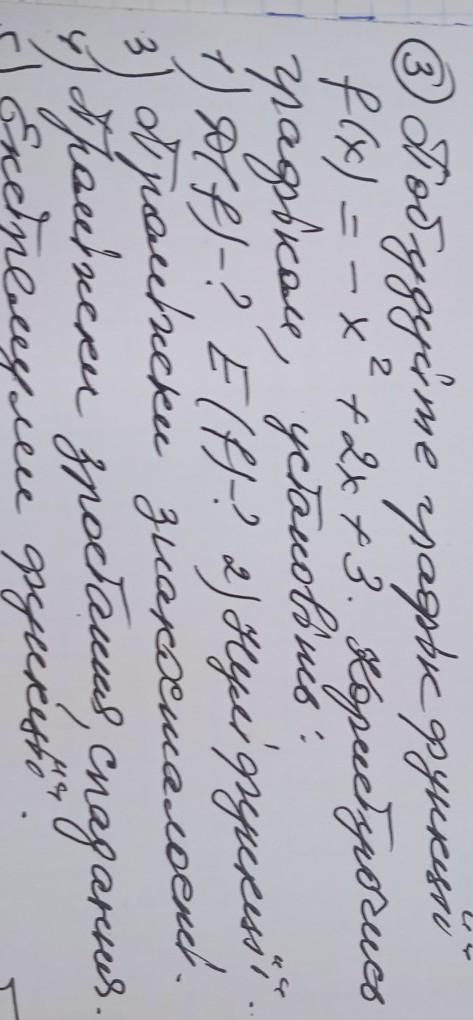 ③ Побудуйте графік функції
f(x) = - x² + 2x + 3. Користуючись
графіком, установіть:
1) D(f)-? E(f)-? 2) Нулі функції.
3) Проміжки знакосталості.
4) Проміжки зростання, спадання.
5) Екстремуми функції.